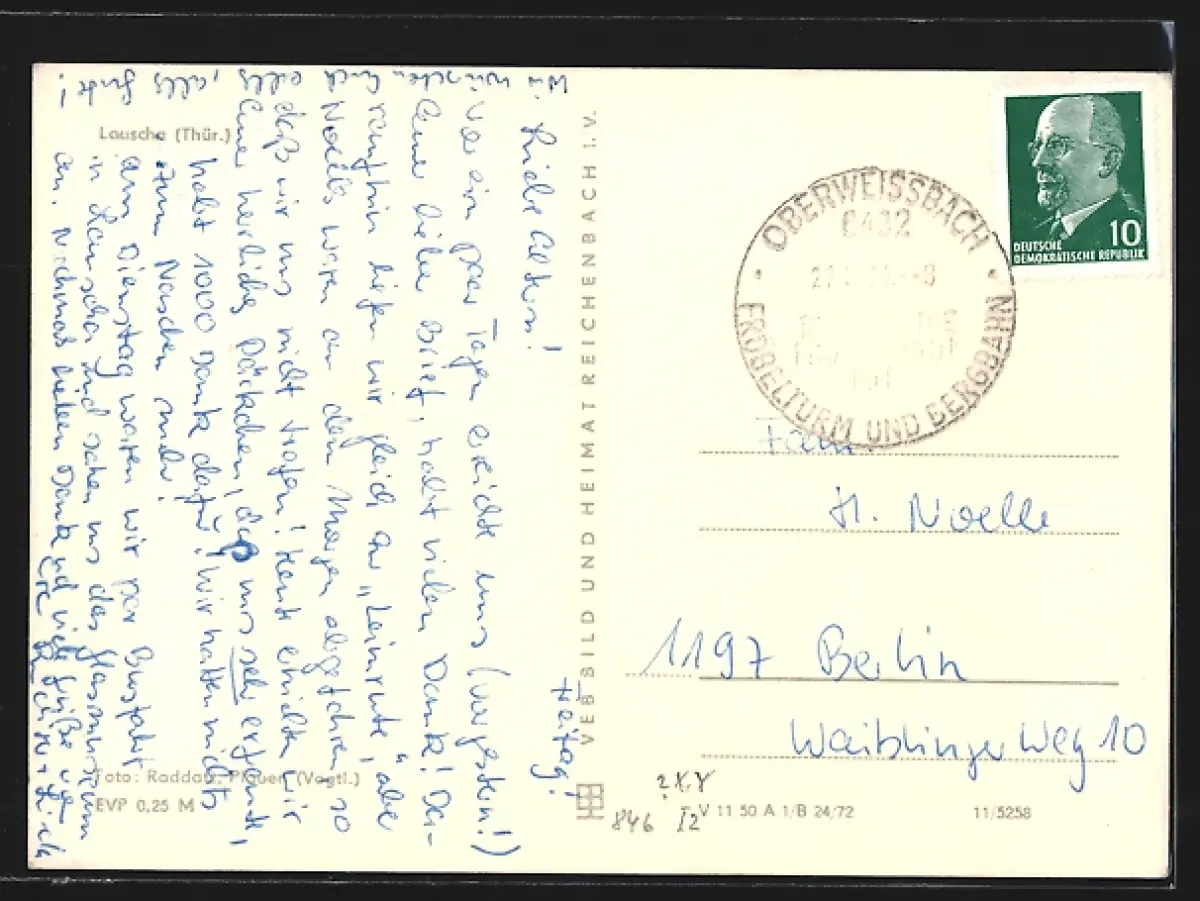 Lauscha (Thür.)
Freitag!
Liebe Eltern!
Vor ein paar Tagen erreichte uns (vorgestern!)
Euer lieber Brief, habt vielen Dank! Da-
raufhin liefen wir gleich zu „Leinrute“, aber
Noelles waren an dem Morgen abgefahren – so
daß wir uns nicht trafen! Heute erhielten wir
Euer herrliches Päckchen, das uns sehr erfreute,
habt 1000 Dank dafür! Wir hatten nichts
zum Naschen mehr!
Am Dienstag waren wir per Busfahrt
in Lauscha und sahen uns das Glasmuseum
an. Nochmals lieben Dank und viele Grüße von
Wir wünschen Euch alles, alles Gute!
Foto: Raddatz, Plauen (Vogtl.)
EVP 0,25 M
VEB BILD UND HEIMAT REICHENBACH I. V.
DEUTSCHE
DEMOKRATISCHE REPUBLIK
10
OBERWEISSBACH
6432
FRÖBELTURM UND BERGBAHN
Fam.
H. Noelle
1197 Berlin
Waiblinger Weg 10
846 I2
V 11 50 A 1/B 24/72
11/5258